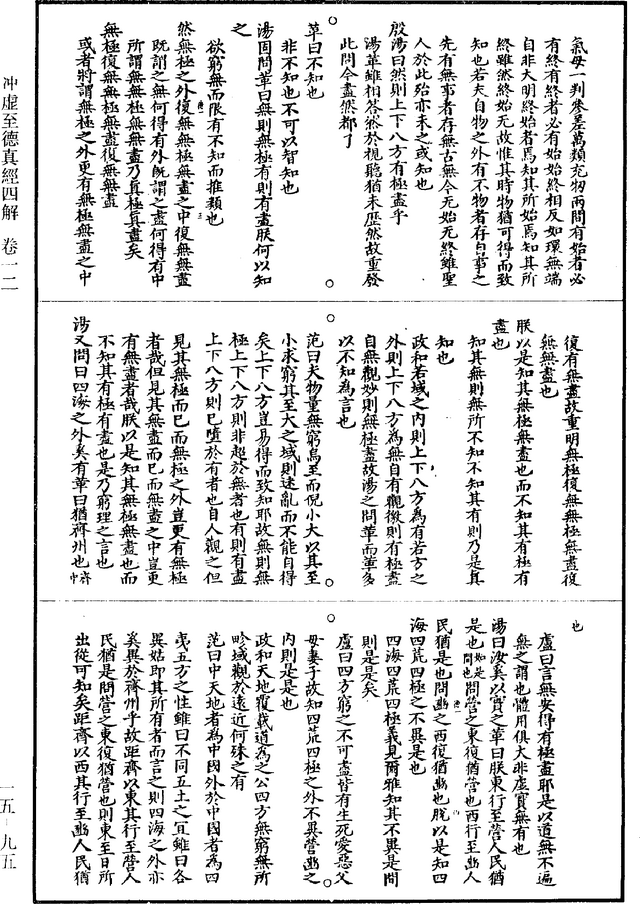 冲虛至德真經四解 卷一二
一五-九五
氣母一判叅差萬類充牣兩間有始者必
有終有終者必有始始終相反如環無端
自非大明終始者焉知其所始焉知其所
終雖然終始无故惟其時物猶可得而致
知也若夫自物之外有不物者存自事之
先有無事者存無古無今无始无終雖聖
人於此殆亦未之或知也
殷湯曰然則上下八方有極盡乎
湯革雖相荅然於視聽猶未歷然故重發
此問令盡然都了
革曰不知也
非不知也不可以智知也
湯固問革曰無則無極有則有盡朕何以知
之
欲窮無而限有不知而推類也
然無極之外復無無極無盡之中復無無盡
既謂之無何得有外既謂之盡何得有中
所謂無無極無無盡乃真極真盡矣
無極復無無極無盡復無無盡
或者將謂無極之外更有無極無盡之中
復有無盡故重明無極復無無極無盡復
無無盡也
朕以是知其無極無盡也而不知其有極有
盡也
知其無則無所不知不知其有則乃是真
知也
政和若域之内則上下八方為有若方之
外則上下八方為無自有觀徼則有極盡
自無觀妙則無極盡故湯之問革而革多
以不知為言也
范曰夫物量無窮烏至而倪小大以其至
小求窮其至大之域則迷亂而不能自得
矣上下八方豈易得而致知耶故無則無
極上下八方則非超於無者也有則有盡
上下八方則已墮於有者也自人觀之但
見其無極而已而無極之外豈更有無極
者哉但見其無盡而已而無盡之中豈更
有無盡者哉朕以是知其無極無盡也而
不知其有極有盡也是乃窮理之言也
湯又問曰四海之外奚有革曰猶齊州也齊中
也
盧曰言無安得有極盡耶是以道無不遍
無之謂也體用俱大非虛實無有也
湯曰汝奚以實之革曰朕東行至營人民猶
是也如是間也問營之東復猶營也西行至豳人
民猶是也問豳之西復猶豳也朕以是知四
海四荒四極之不異是也
四海四荒四極義見爾雅知其不異是間
則是是矣
盧曰四方窮之不可盡皆有生死愛惡父
母妻子故知四荒四極之外不異營豳之
内則是是也
政和天地覆載道為之公四方無窮無所
畛域觀於遠近何殊之有
范曰中天地者為中國外於中國者為四
夷五方之性雖曰不同五土之宜雖曰各
異姑即其所有者而言之則四海之外亦
奚異於齊州乎故距齊以東其行至營人
民猶是問營之東復猶營也則東至日所
出從可知矣距齊以西其行至豳人民猶